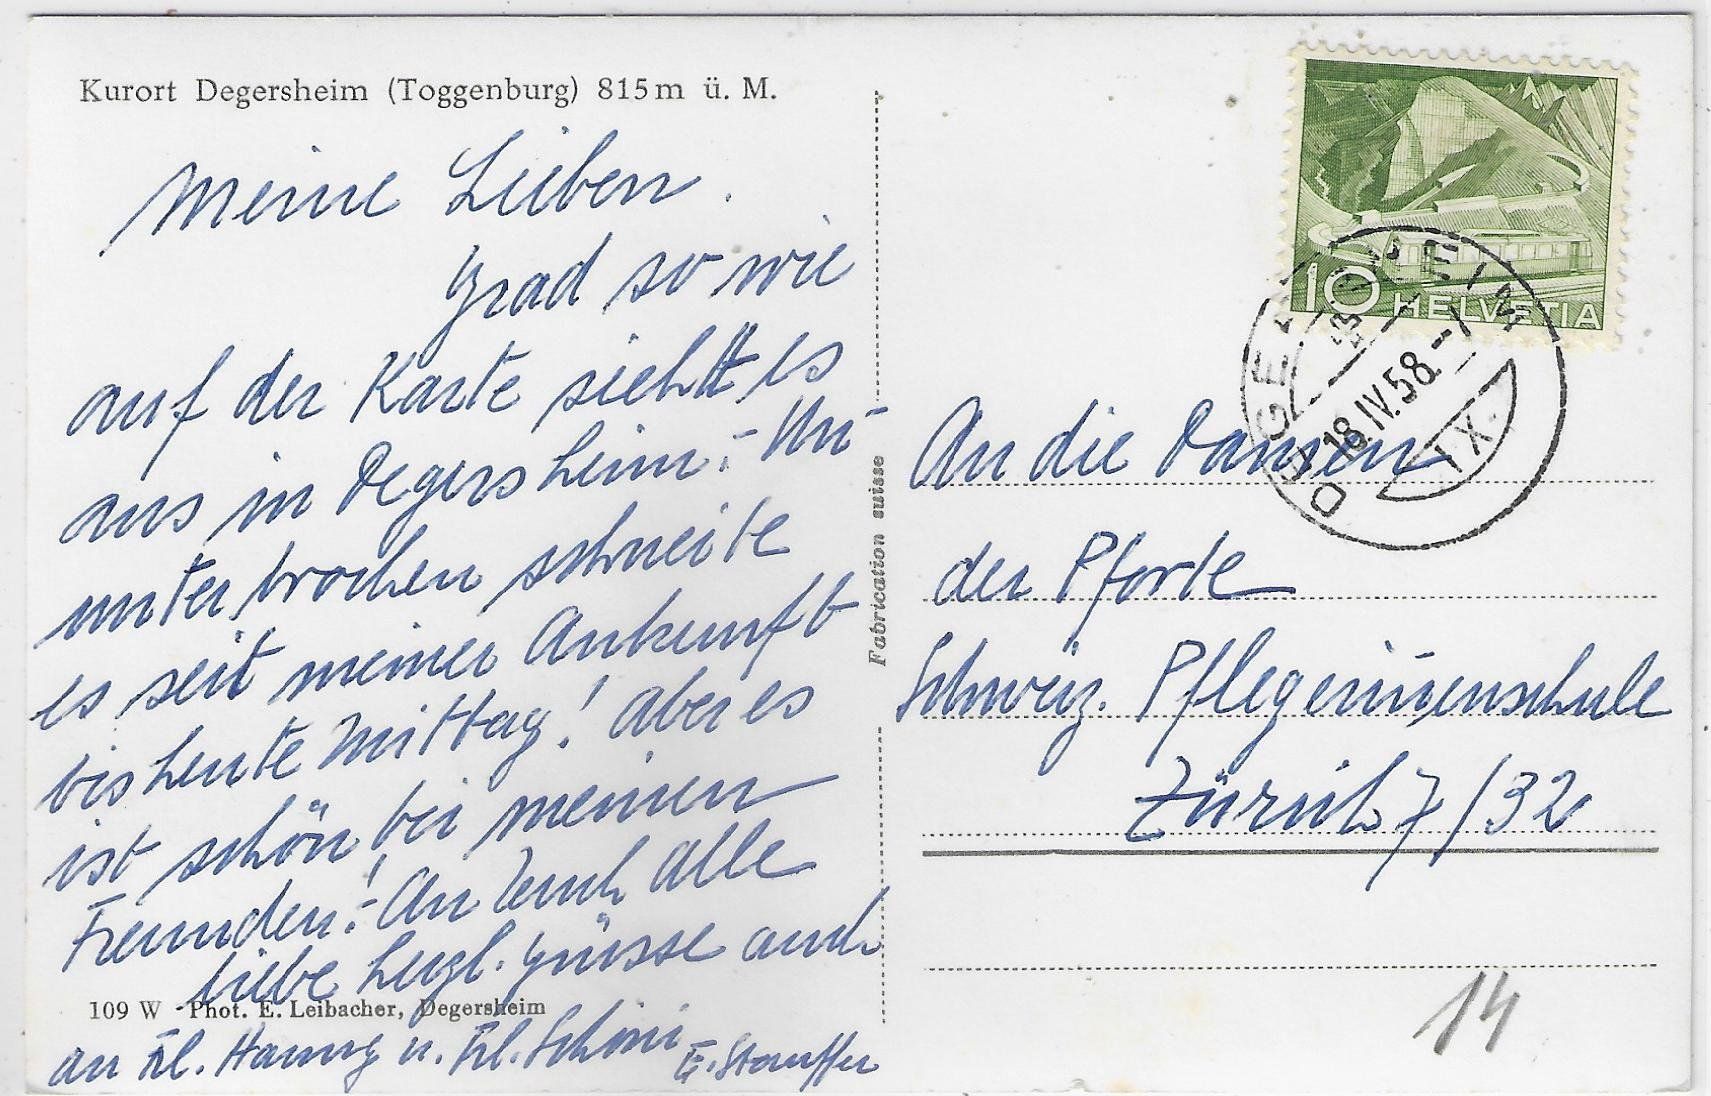 Kurort Degersheim (Toggenburg) 815 m ü. M.
Meine Lieben.
Grad so wie
auf der Karte sieht es
aus in Degersheim! Un-
unterbrochen schneite
es seit meiner Ankunft
bis heute Mittag! Aber es
ist schön bei meinen
Freunden! An Euch alle
liebe herzl. Grüsse auch
109 W - Phot. E. Leibacher, Degersheim
an Frl. u. Frl. Schöni E. Stauffer
Fabrication suisse
10 HELVETIA
DEGERSHEIM
18.IV.58.-7
IX.
An die Damen
der Pforte
Schweiz. Pflegerinnenschule
Zürich 7/32
14